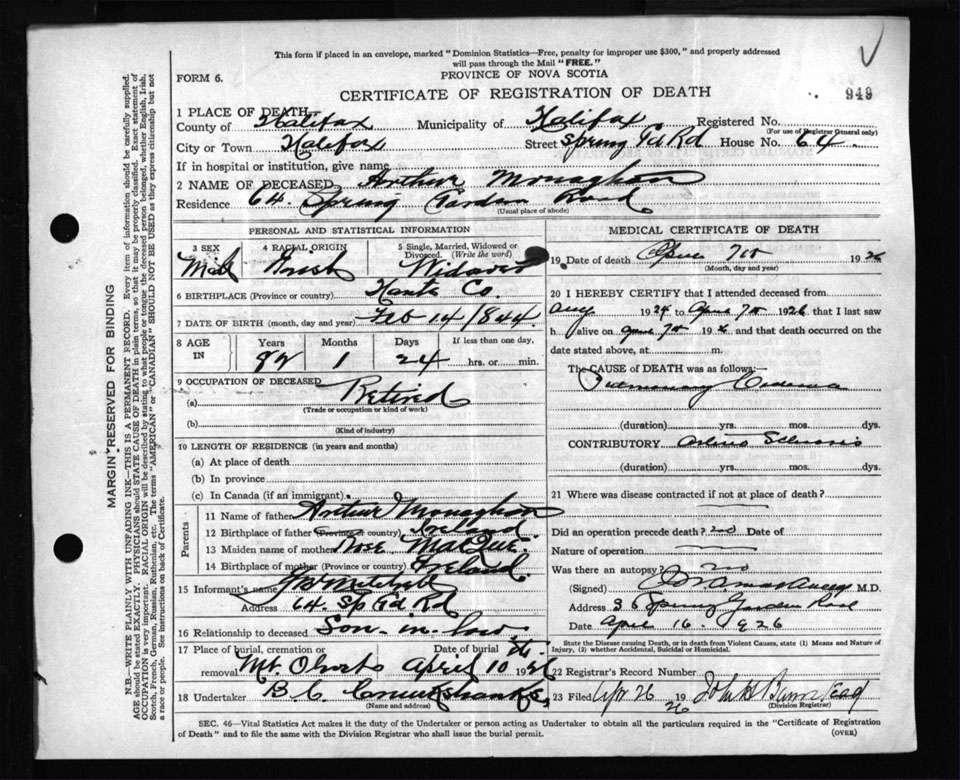 This form if placed in an envelope, marked "Dominion Statistics—Free, penalty for improper use $300," and properly addressed
will pass through the Mail "FREE."
FORM 6.
PROVINCE OF NOVA SCOTIA
CERTIFICATE OF REGISTRATION OF DEATH
949
1 PLACE OF DEATH
County of Halifax Municipality of Halifax Registered No.
(For use of Registrar General only)
City or Town Halifax Street Spring Gd Rd House No. 64.
If in hospital or institution, give name
2 NAME OF DECEASED Arthur Monaghan
Residence 64. Spring Garden Road
(Usual place of abode)
PERSONAL AND STATISTICAL INFORMATION
3 SEX 4 RACIAL ORIGIN 5 Single, Married, Widowed or Divorced. (Write the word)
Male Irish Widower
6 BIRTHPLACE (Province or country) Hants Co.
7 DATE OF BIRTH (month, day and year) Feb 14/844
8 AGE IN Years Months Days If less than one day,
82 1 24 hrs. or min.
9 OCCUPATION OF DECEASED
(a) Retired
(Trade or occupation or kind of work)
(b)
(Kind of industry)
10 LENGTH OF RESIDENCE (in years and months)
(a) At place of death
(b) In province
(c) In Canada (if an immigrant).
Parents
11 Name of father Arthur Monaghan
12 Birthplace of father (Province or country) Ireland
13 Maiden name of mother Rose
14 Birthplace of mother (Province or country) Ireland
15 Informant's name Mitchell
Address 64. Sp Gd Rd
16 Relationship to deceased Son-in-law
17 Place of burial, cremation or removal Mt. Olivet Date of burial April 10 1926
18 Undertaker B. C. Cruikshanks
(Name and address)
MEDICAL CERTIFICATE OF DEATH
19 Date of death April 7th 1926
(Month, day and year)
20 I HEREBY CERTIFY that I attended deceased from
Aug 1924 to April 7th 1926 that I last saw
h alive on April 7th 1926 and that death occurred on the
date stated above, at m.
The CAUSE OF DEATH was as follows:—
Pulmonary Oedema
(duration) yrs. mos. dys.
CONTRIBUTORY Arterio Sclerosis
(duration) yrs. mos. dys.
21 Where was disease contracted if not at place of death?
Did an operation precede death? no Date of
Nature of operation
Was there an autopsy? no
(Signed) M.D.
Address 36 Spring Garden Road
Date April 16. 1926
State the Disease causing Death, or in death from Violent Causes, state (1) Means and Nature of
Injury, (2) whether Accidental, Suicidal or Homicidal.
22 Registrar's Record Number
23 Filed Apr 26 1926 John
(Division Registrar)
SEC. 46—Vital Statistics Act makes it the duty of the Undertaker or person acting as Undertaker to obtain all the particulars required in the "Certificate of Registration
of Death" and to file the same with the Division Registrar who shall issue the burial permit.
(OVER)
MARGIN RESERVED FOR BINDING
N.B.—WRITE PLAINLY WITH UNFADING INK—THIS IS A PERMANENT RECORD. Every item of information should be carefully supplied.
AGE should be stated EXACTLY. PHYSICIANS should STATE CAUSE OF DEATH in plain terms, so that it may be properly classified. Exact statement of
OCCUPATION is very important. RACIAL ORIGIN will be described by stating to what people or tongue the deceased person belonged, whether English, Irish,
Scotch, French, German, Russian, Ruthenian, etc. The terms "AMERICAN" or "CANADIAN" SHOULD NOT BE USED as they express citizenship but not
a race or people. See instructions on back of Certificate.